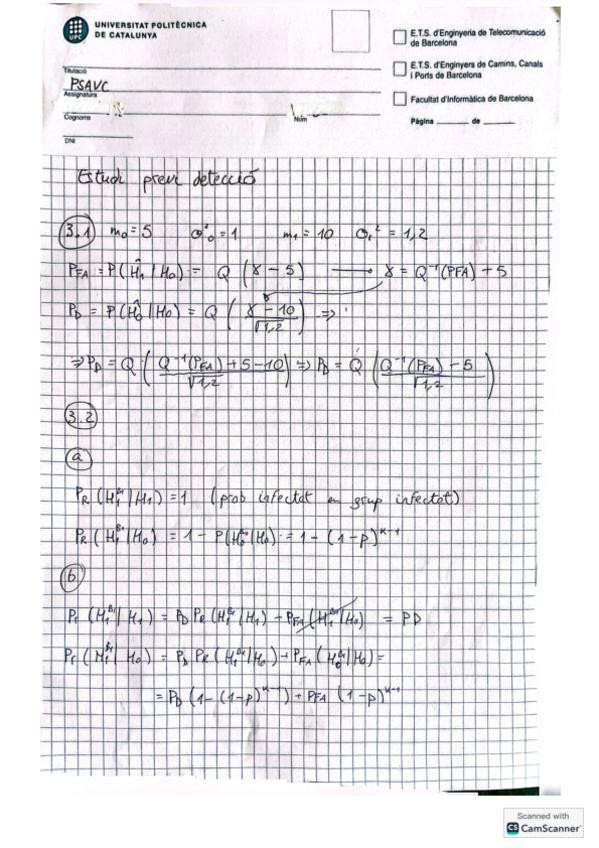 UNIVERSITAT POLITÈCNICA
DE CATALUNYA
UPC
E.T.S. d'Enginyeria de Telecomunicació
de Barcelona
E.T.S. d'Enginyers de Camins, Canals
i Ports de Barcelona
Facultat d'Informàtica de Barcelona
Titulació
PSAVC
Assignatura
Cognoms
Nom
Pàgina ____ de ____
DNI
Estudi previ detecció
3.1 m₀ = 5 σ₀² = 1 m₁ = 10 σ₁² = 1,2
P_FA = P(Ĥ₁ | H₀) = Q (γ − 5) → γ = Q⁻¹(PFA) + 5
P_D = P(Ĥ₀ | H₀) = Q ( (γ − 10) / √1,2 ) ⇒
⇒ P_D = Q ( (Q⁻¹(P_FA) + 5 − 10) / √1,2 ) ⇒ P_D = Q ( (Q⁻¹(P_FA) − 5) / √1,2 )
3.2
a
Pr (H₁^B1 | H₁) = 1 (prob infectat en grup infectat)
Pr (H₁^B1 | H₀) = 1 − P(H₀^B1 | H₀) = 1 − (1−p)^(k−1)
b
Pr (Ĥ₁^B1 | H₁) = P_D Pr (H₁^B1 | H₁) + P_FA (H₁^B1 | H₀) = PD
Pr (Ĥ₁^B1 | H₀) = P_D Pr (H₁^B1 | H₀) + P_FA (H₀^B1 | H₀) =
= P_D (1 − (1−p)^(k−1)) + PFA (1−p)^(k−1)
Scanned with
CS CamScanner